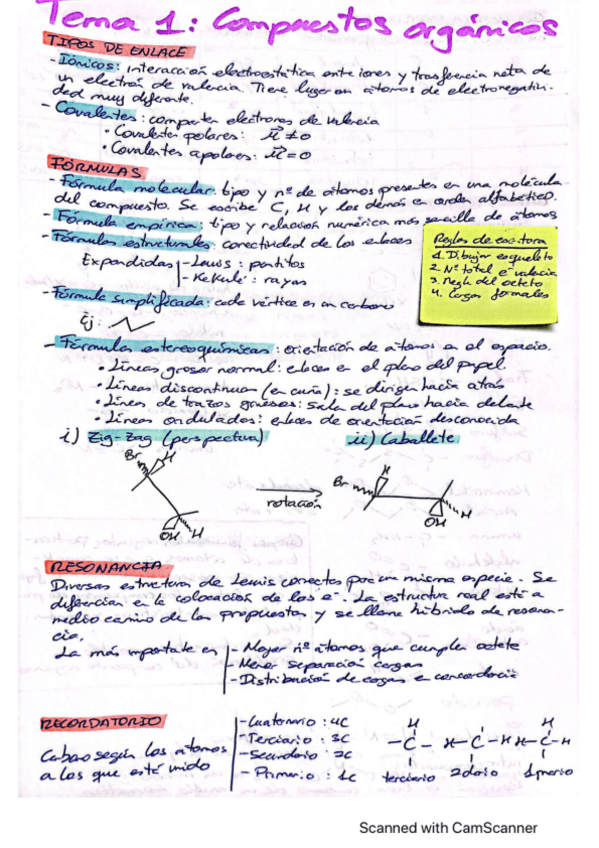 Tema 1: Compuestos orgánicos
TIPOS DE ENLACE
- Iónicos: interacción electrostática entre iones y trasferencia neta de
un electrón de valencia. Tiene lugar en átomos de electronegativi-
dad muy diferente.
- Covalentes: comparten electrones de valencia
• Covalentes polares: μ⃗ ≠ 0
• Covalentes apolares: μ⃗ = 0
FÓRMULAS
- Fórmula molecular: tipo y nº de átomos presentes en una molécula
del compuesto. Se escribe C, H y los demás en orden alfabético.
- Fórmula empírica: tipo y relación numérica más sencilla de átomos
- Fórmulas estructurales: conectividad de los enlaces
Expandidas
- Lewis: puntitos
- Kekulé: rayas
Reglas de escritura
1. Dibujar esqueleto
2. Nº total e⁻ valencia
3. Regla del octeto
4. Cargas formales
- Fórmula simplificada: cada vértice es un carbono
Ej:
- Fórmulas estereoquímicas: orientación de átomos en el espacio.
• Líneas grosor normal: enlaces en el plano del papel
• Líneas discontinuas (en cuña): se dirigen hacia atrás
• Líneas de trazos gruesos: sale del plano hacia delante
• Líneas onduladas: enlaces de orientación desconocida
i) Zig-Zag (perspectiva)
ii) Caballete
Br H
OH H
rotación
Br H
OH H
RESONANCIA
Diversas estructuras de Lewis correctas para una misma especie. Se
diferencian en la colocación de los e⁻. La estructura real está a
medio camino de las propuestas y se llama híbrido de resonan-
cia.
La más importante es
- Mayor nº átomos que cumplen octeto
- Menor separación cargas
- Distribución de cargas en concordancia
RECORDATORIO
Carbono según los átomos
a los que esté unido
- Cuaternario: 4C
- Terciario: 3C
- Secundario: 2C
- Primario: 1C
H
-C-
terciario
H
H-C-H
2dario
H
H-C-H
1mario
Scanned with CamScanner